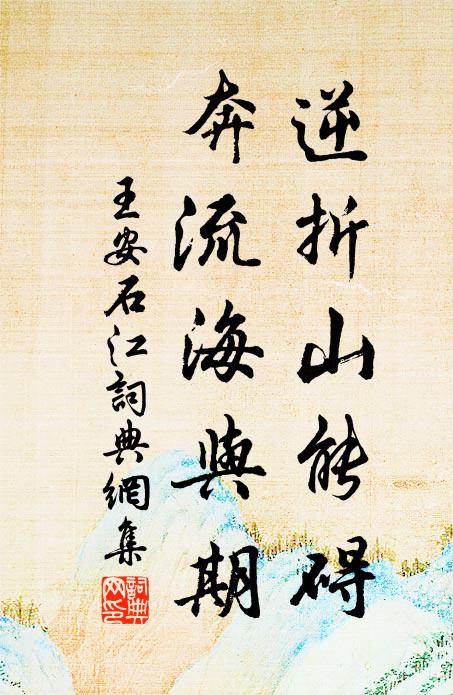 逆折山能碍
奔流海與期
王安石江詞典網集
詞典网印